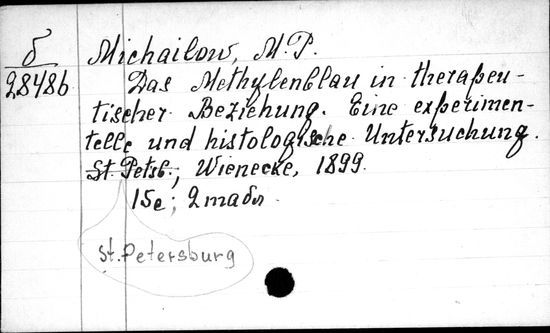 б
28486
Michailow, M.P.
Das Methylenblau in therapeu-
tischer Beziehung. Eine experimen-
telle und histologische Untersuchung.
St. Petsb.; Wienecke, 1899.
15c; 2 табл.
St. Petersburg